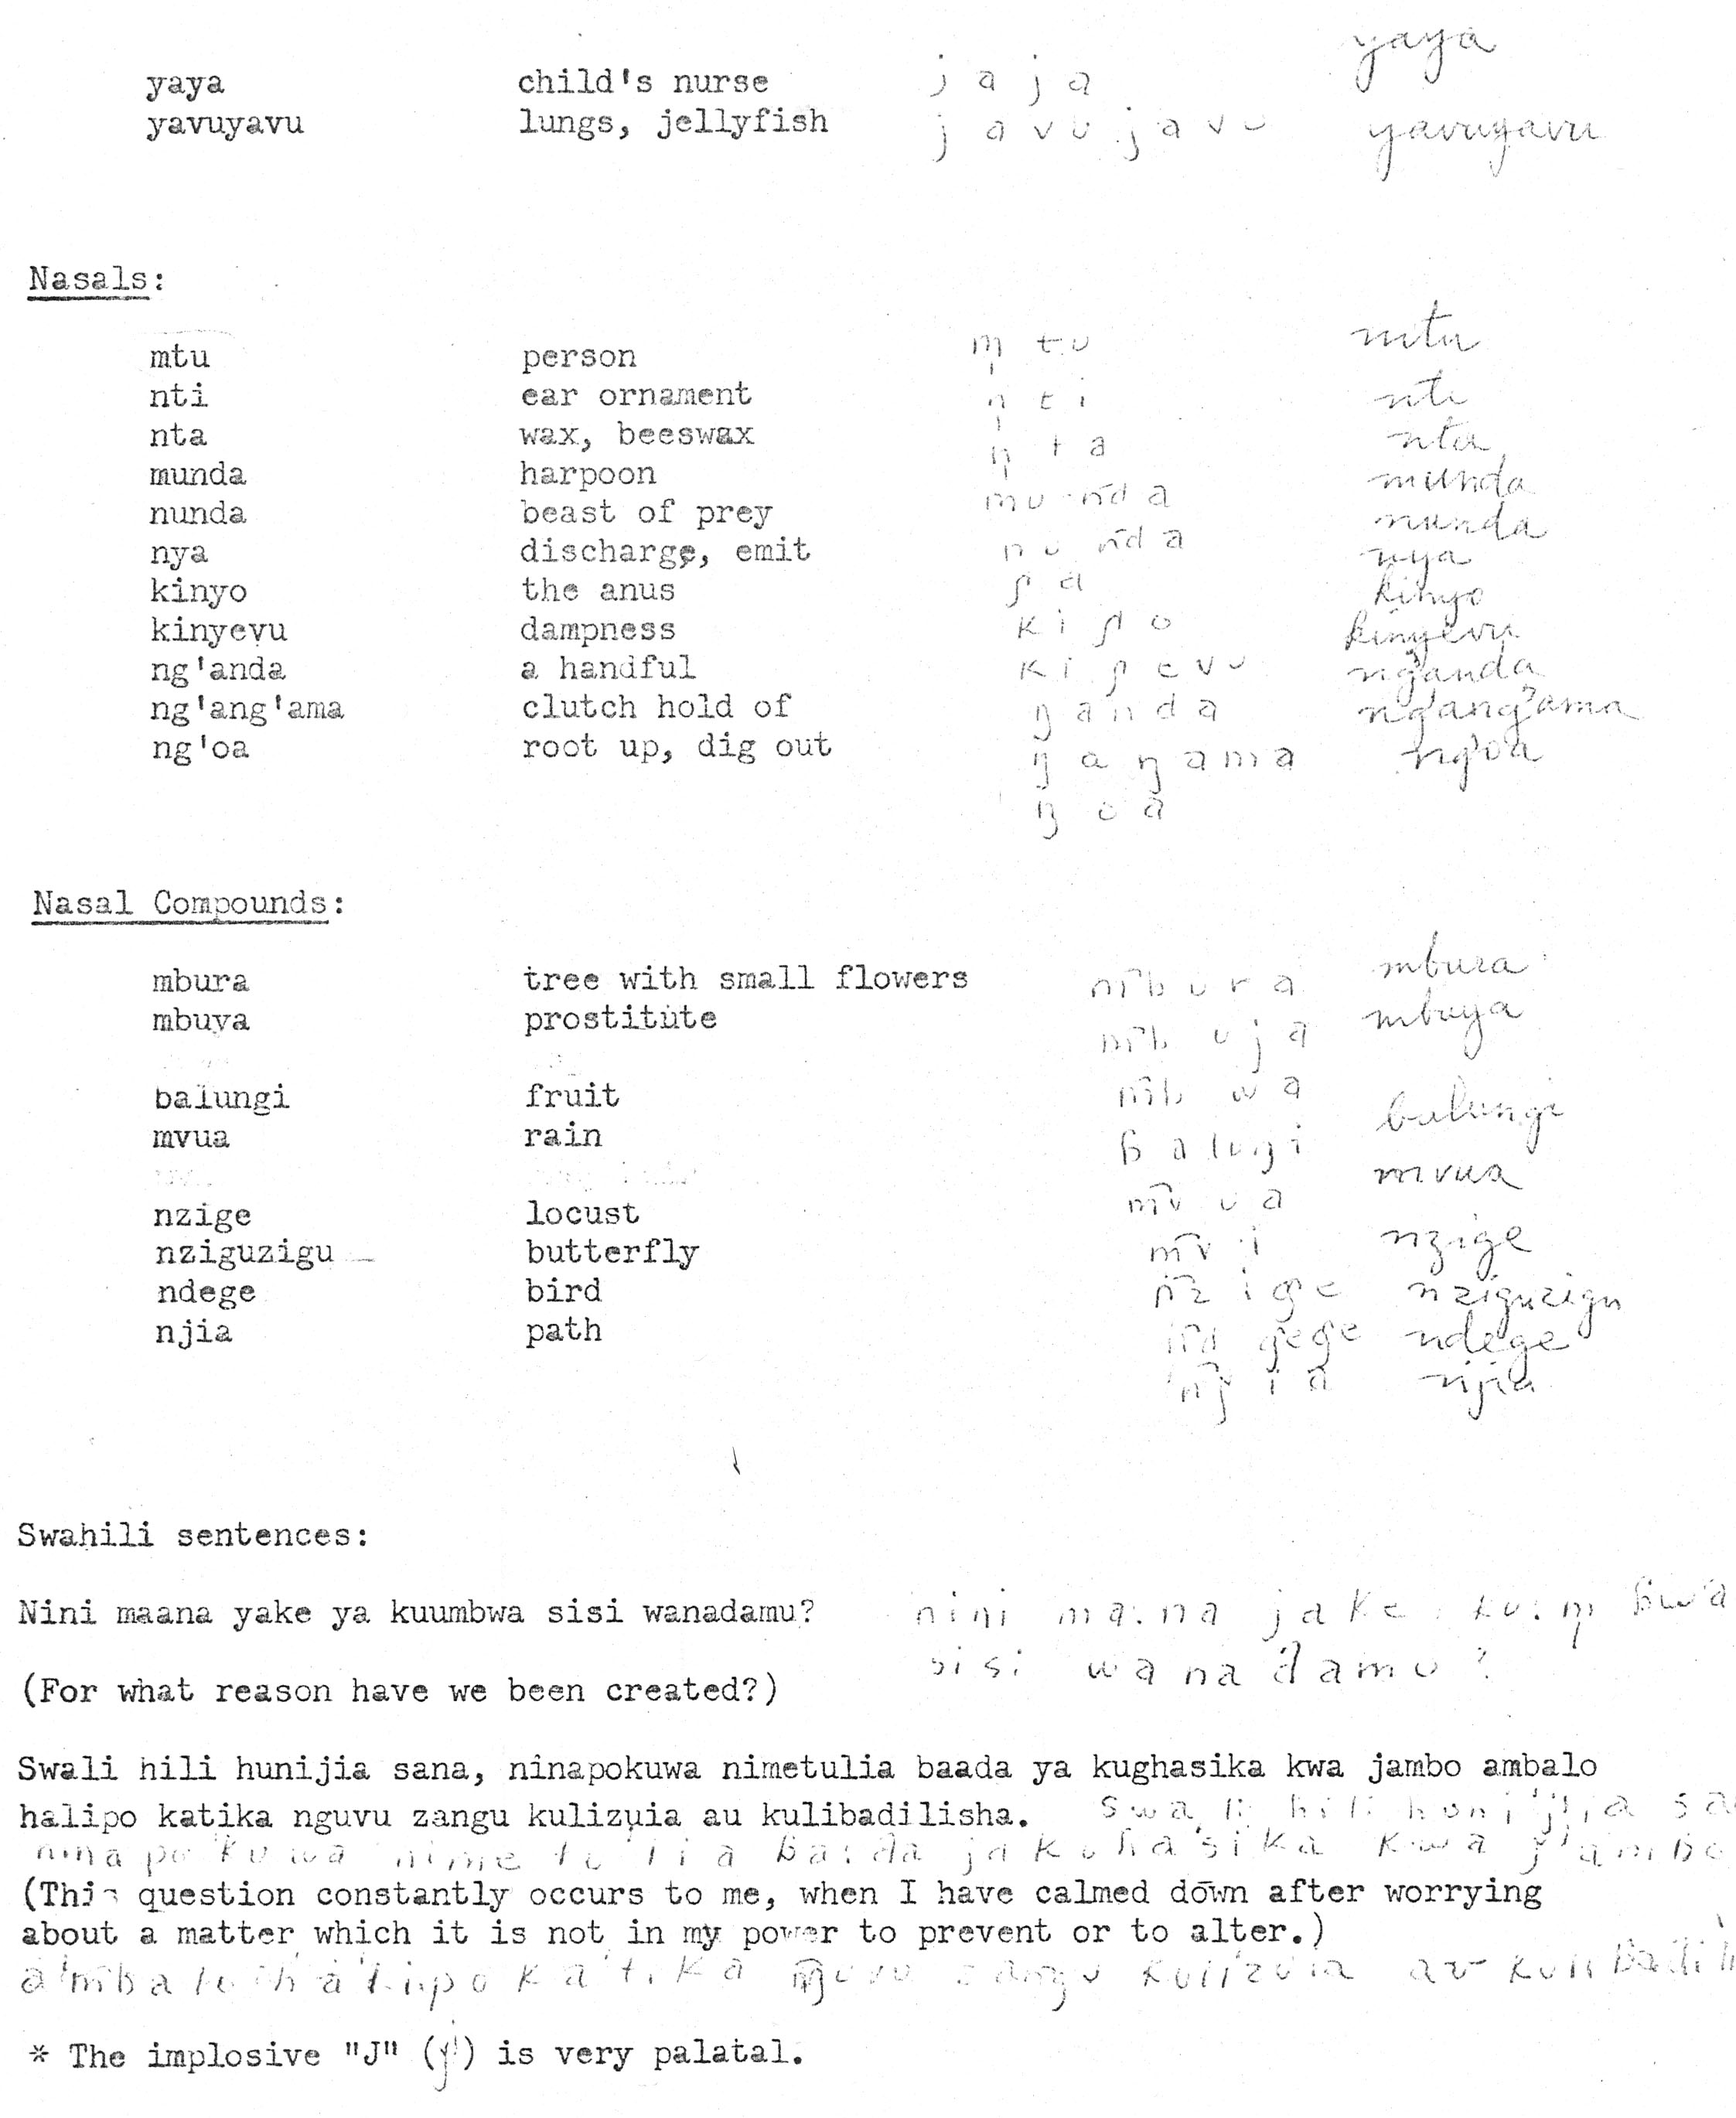 yaya
yaya child's nurse j a j a
yavuyavu lungs, jellyfish j a v u j a v u yavuyavu
Nasals:
mtu person m̩ t u mtu
nti ear ornament n̩ t i nti
nta wax, beeswax n̩ t a nta
munda harpoon m u n͡d a munda
nunda beast of prey n u n͡d a nunda
nya discharge, emit ɲ a nya
kinyo the anus k i ɲ o kinyo
kinyevu dampness k i ɲ e v u kinyevu
ng'anda a handful ŋ a n d a ng'anda
ng'ang'ama clutch hold of ŋ a ŋ a m a ng'ang'ama
ng'oa root up, dig out ŋ o a ng'oa
Nasal Compounds:
mbura tree with small flowers m͡b u r a mbura
mbuya prostitute m͡b u j a mbuya
m͡b w a
balungi fruit ɓ a l u ŋ i balungi
mvua rain m͡v u a mvua
m͡v i
nzige locust n͡z i g e nzige
nziguzigu butterfly nziguzigu
ndege bird ndege
njia path njia
Swahili sentences:
Nini maana yake ya kuumbwa sisi wanadamu? nini ma:na jake ku:m̩ ɓwa
sisi wanaɗamu?
(For what reason have we been created?)
Swali hili hunijia sana, ninapokuwa nimetulia baada ya kughasika kwa jambo ambalo
halipo katika nguvu zangu kulizuia au kulibadilisha. swali hili huni
ninapokuwa nimetulia ɓa:ɗa ja kuhasika kwa
(This question constantly occurs to me, when I have calmed down after worrying
about a matter which it is not in my power to prevent or to alter.)
katika kulizuia au
* The implosive "J" (ʄ) is very palatal.